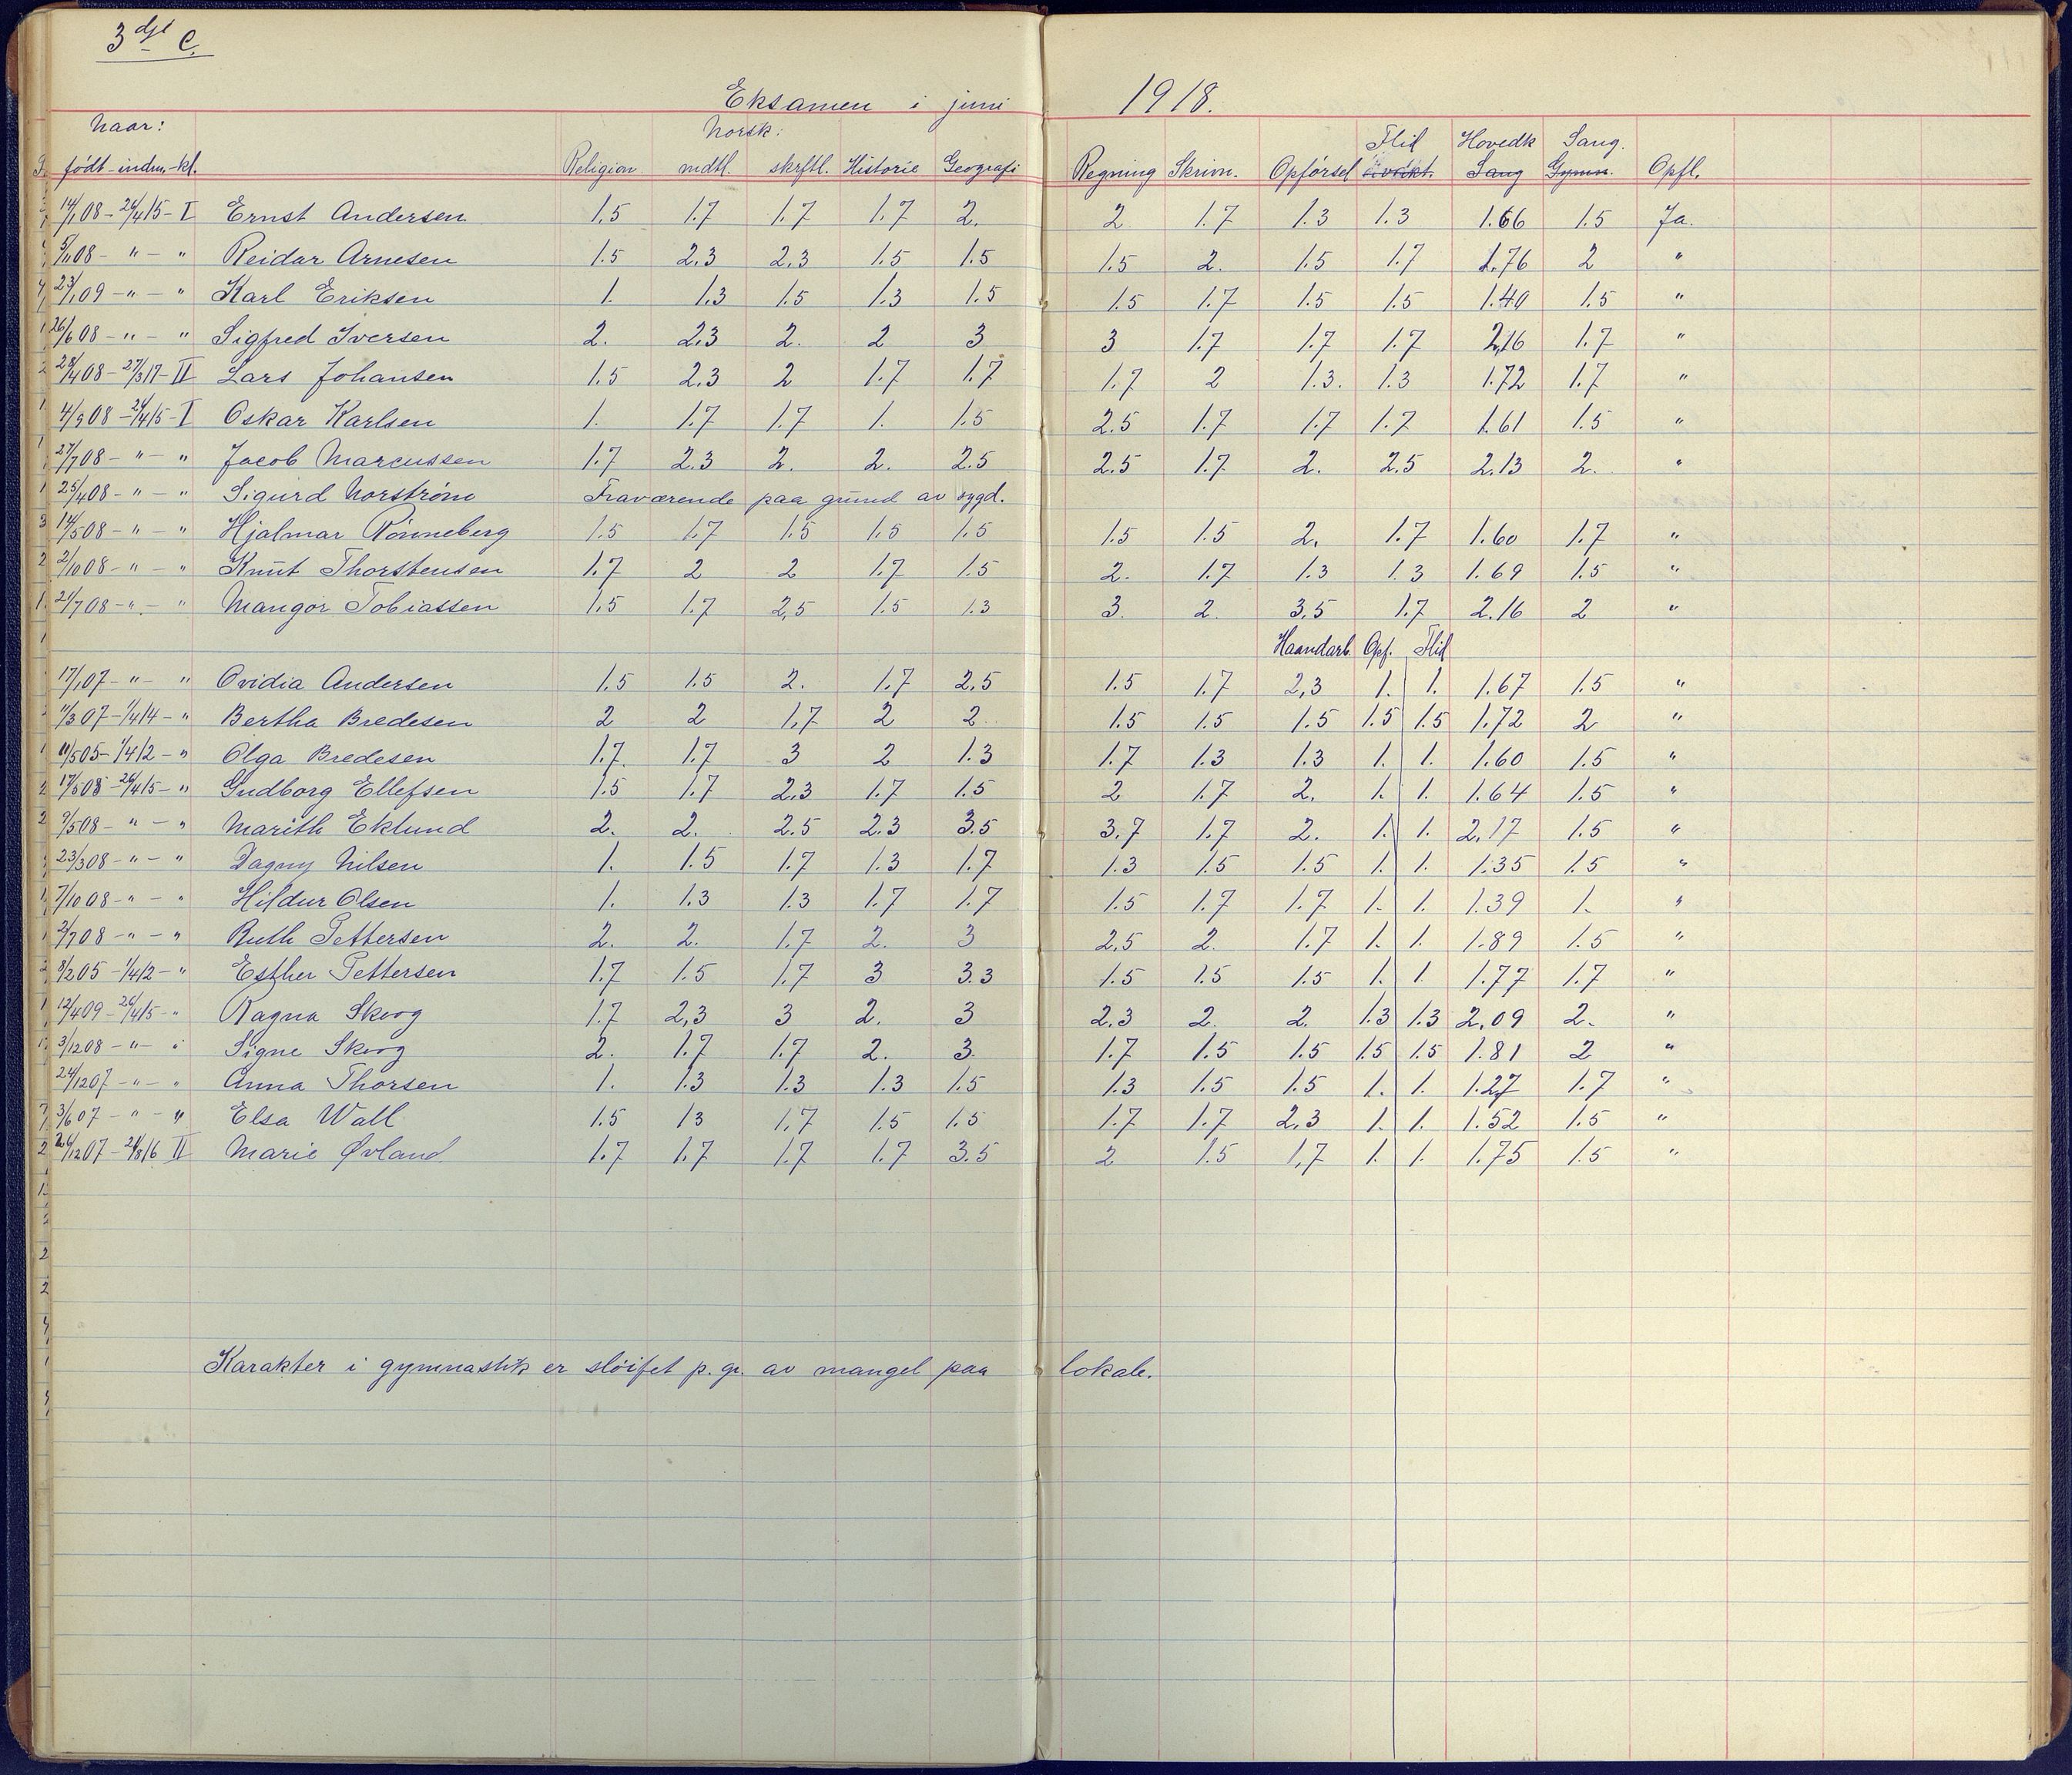 3dje C.
Eksamen i juni 1918.
Naar: Norsk: Flid Hovedk Sang.
født-indm.-kl. Religion mdtl. skrftl. Historie Geografi Regning Skrivn. Opførsel Sang Gymn. Opfl.
14/1 08 - 26/4 15 - I Ernst Andersen 1.5 1.7 1.7 1.7 2. 2 1.7 1.3 1.3 1.66 1.5 Ja.
5/11 08 - " - " Reidar Arnesen 1.5 2.3 2.3 1.5 1.5 1.5 2. 1.5 1.7 1.76 2 "
23/1 09 - " - " Karl Eriksen 1. 1.3 1.5 1.3 1.5 1.5 1.7 1.5 1.5 1.40 1.5 "
26/6 08 - " - " Sigfred Iversen 2. 2.3 2. 2 3 3 1.7 1.7 1.7 2.16 1.7 "
28/4 08 - 27/3 17 - II Lars Johansen 1.5 2.3 2 1.7 1.7 1.7 2 1.3. 1.3 1.72 1.7 "
4/9 08 - 26/4 15 - I Oskar Karlsen 1. 1.7 1.7 1. 1.5 2.5 1.7 1.7 1.7 1.61 1.5 "
27/7 08 - " - " Jacob Marcussen 1.7 2.3 2. 2. 2.5 2.5 1.7 2. 2.5 2.13 2. "
25/4 08 - " - " Sigurd Norstrøm Fraværende paa grund av sygd.
14/5 08 - " - " Hjalmar Rønneberg 1.5 1.7 1.5 1.5 1.5 1.5 1.5 2. 1.7 1.60 1.7 "
2/10 08 - " - " Knut Thorstensen 1.7 2 2 1.7 1.5 2. 1.7 1.3 1.3 1.69 1.5 "
21/7 08 - " - " Mangor Tobiassen 1.5 1.7 2,5 1.5 1.3 3. 2. 3,5 1.7 2.16 2 "
Haandarb. Opf. Flid
17/1 07 - " - " Ovidia Andersen 1.5 1.5 2. 1.7 2.5 1.5 1.7 2,3 1. 1. 1.67 1.5 "
11/3 07 - 1/4 14 - " Bertha Bredesen 2 2 1.7 2 2 1.5 1.5 1.5 1.5 1.5 1.72 2 "
11/5 05 - 1/4 12 - " Olga Bredesen 1.7. 1.7 3 2 1.3 1.7 1.3 1.3 1. 1. 1.60 1.5 "
17/5 08 - 26/4 15 - " Gudborg Ellefsen 1.5 1.7 2.3 1.7 1.5 2 1.7 2. 1. 1. 1.64 1.5 "
9/5 08 - " - " Marith Eklund 2. 2. 2.5 2.3 3.5 3.7 1.7 2. 1. 1. 2.17 1.5 "
23/3 08 - " - " Dagny Nilsen 1. 1.5 1.7 1.3 1.7 1.3 1.5 1.5 1. 1. 1.35 1.5 "
7/10 08 - " - " Hildur Olsen 1. 1.3 1.3 1.7 1.7 1.5 1.7 1.7 1. 1. 1.39 1. "
2/7 08 - " - " Ruth Pettersen 2. 2. 1.7 2. 3 2,5 2. 1.7 1. 1. 1.89 1.5 "
8/2 05 - 1/4 12 - " Esther Pettersen 1.7 1.5 1.7 3 3.3 1.5 1.5 1.5 1. 1. 1.77 1.7 "
12/4 09 - 26/4 15 - " Ragna Skeog 1.7 2,3 3 2. 3 2.3 2. 2. 1.3 1.3 2,09 2. "
3/12 08 - " - " Signe Skeog 2. 1.7 1.7 2. 3. 1.7 1.5 1.5 1.5 1.5 1.81 2 "
24/12 07 - " - " Anna Thorsen 1. 1.3 1.3 1.3 1.5 1.3 1.5 1.5 1. 1. 1.27 1.7 "
3/6 07 - " - " Elsa Wall 1.5 1.3 1.7 1.5 1.5 1.7 1.7 2,3 1. 1. 1.52 1.5 "
26/12 07 - 21/8 16 II Marie Øvland 1.7 1.7 1.7 1.7 3.5 2 1.5 1,7 1. 1. 1.75 1.5 "
Karakter i gymnastik er sløifet p. gr. av mangel paa lokale.